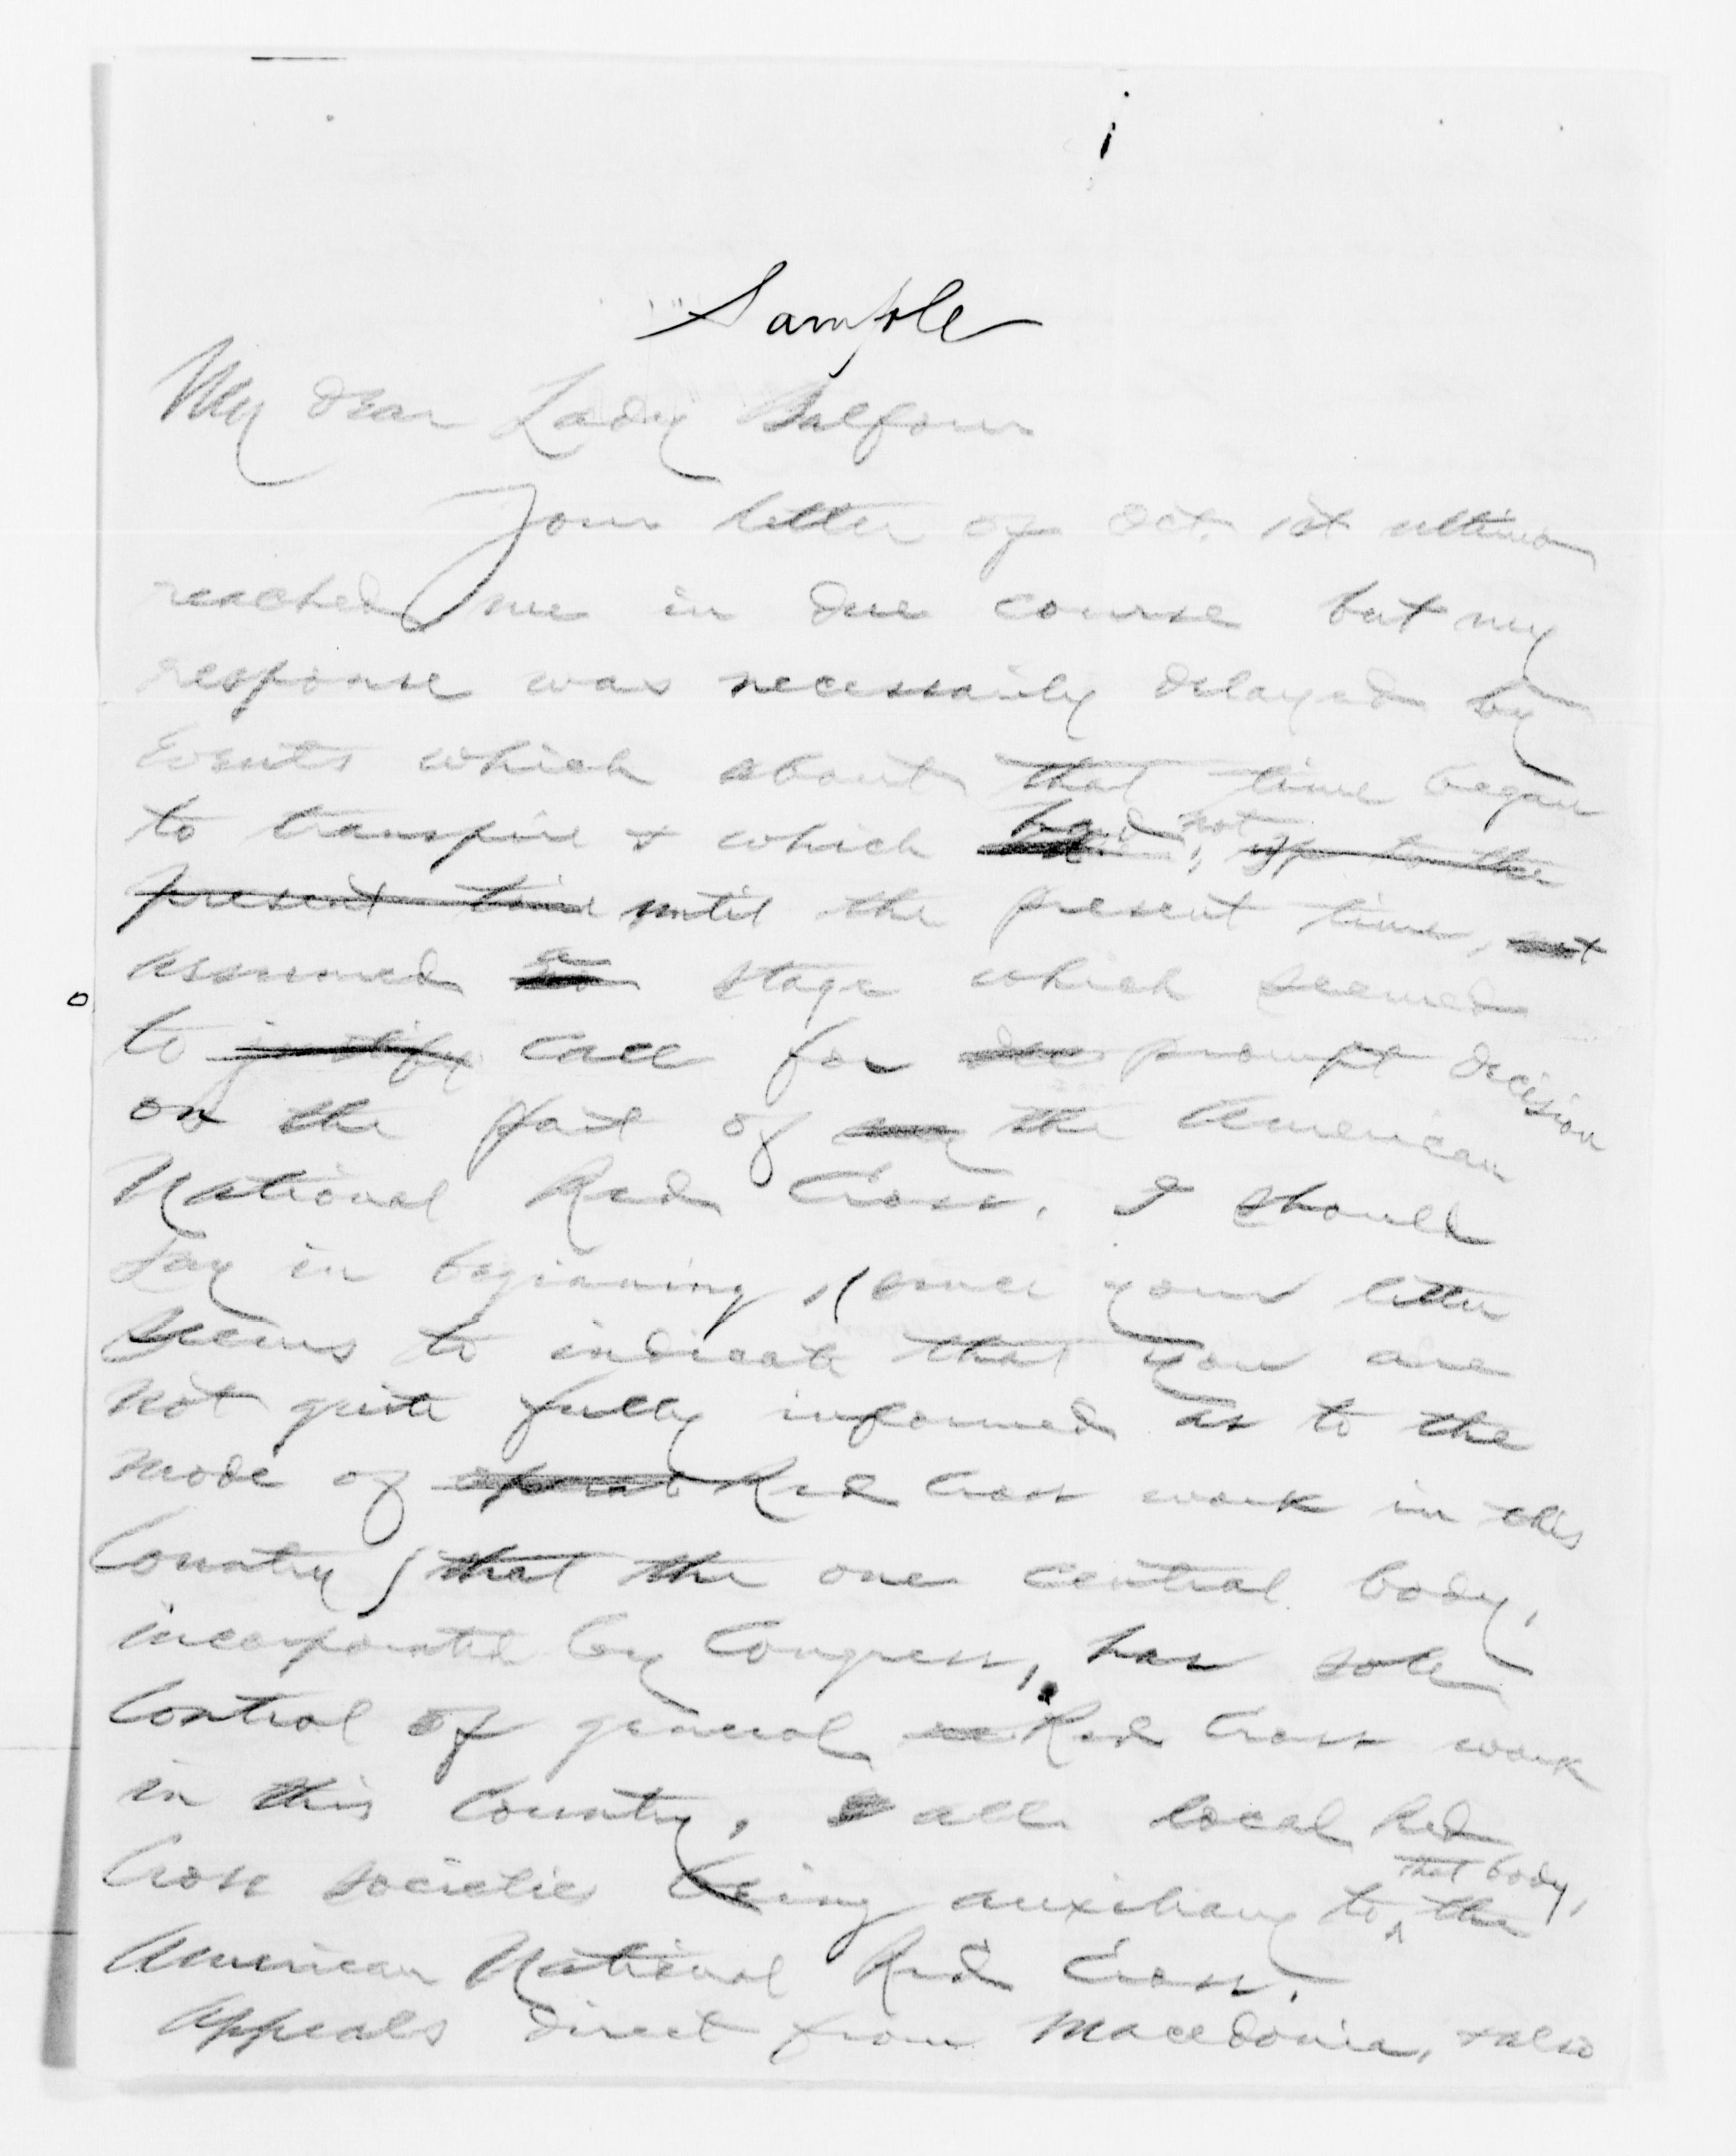 Sample
My dear Lady Balfour
Your letter of Oct. 1st ultimo
reached me in due course but my
response was necessarily delayed by
Events which about that time began
to transpire & which had, not up to the
present time until the present time, not
assumed a stage which seemed
to justify call for prompt decision
on the part of my the American
National Red Cross. I should
Say in beginning, (since your letter
seems to indicate that you are
not quite fully informed as to the
mode of Red Cross work in this
Country) that the one central body,
incorporated by Congress, has sole
Control of general Red Cross work
in this Country, all local Red
Cross societies being auxiliary to that body, the
American National Red Cross.
Appeals direct from Macedonia, & also